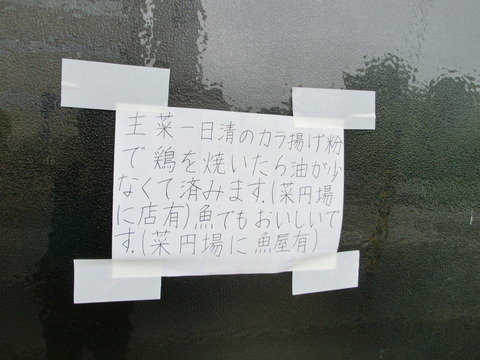 主菜一日清のカラ揚げ粉
で鶏を焼いたら油が少
なくて済みます.(菜円場
に店有)魚でもおいしいで
す.(菜円場に魚屋有)